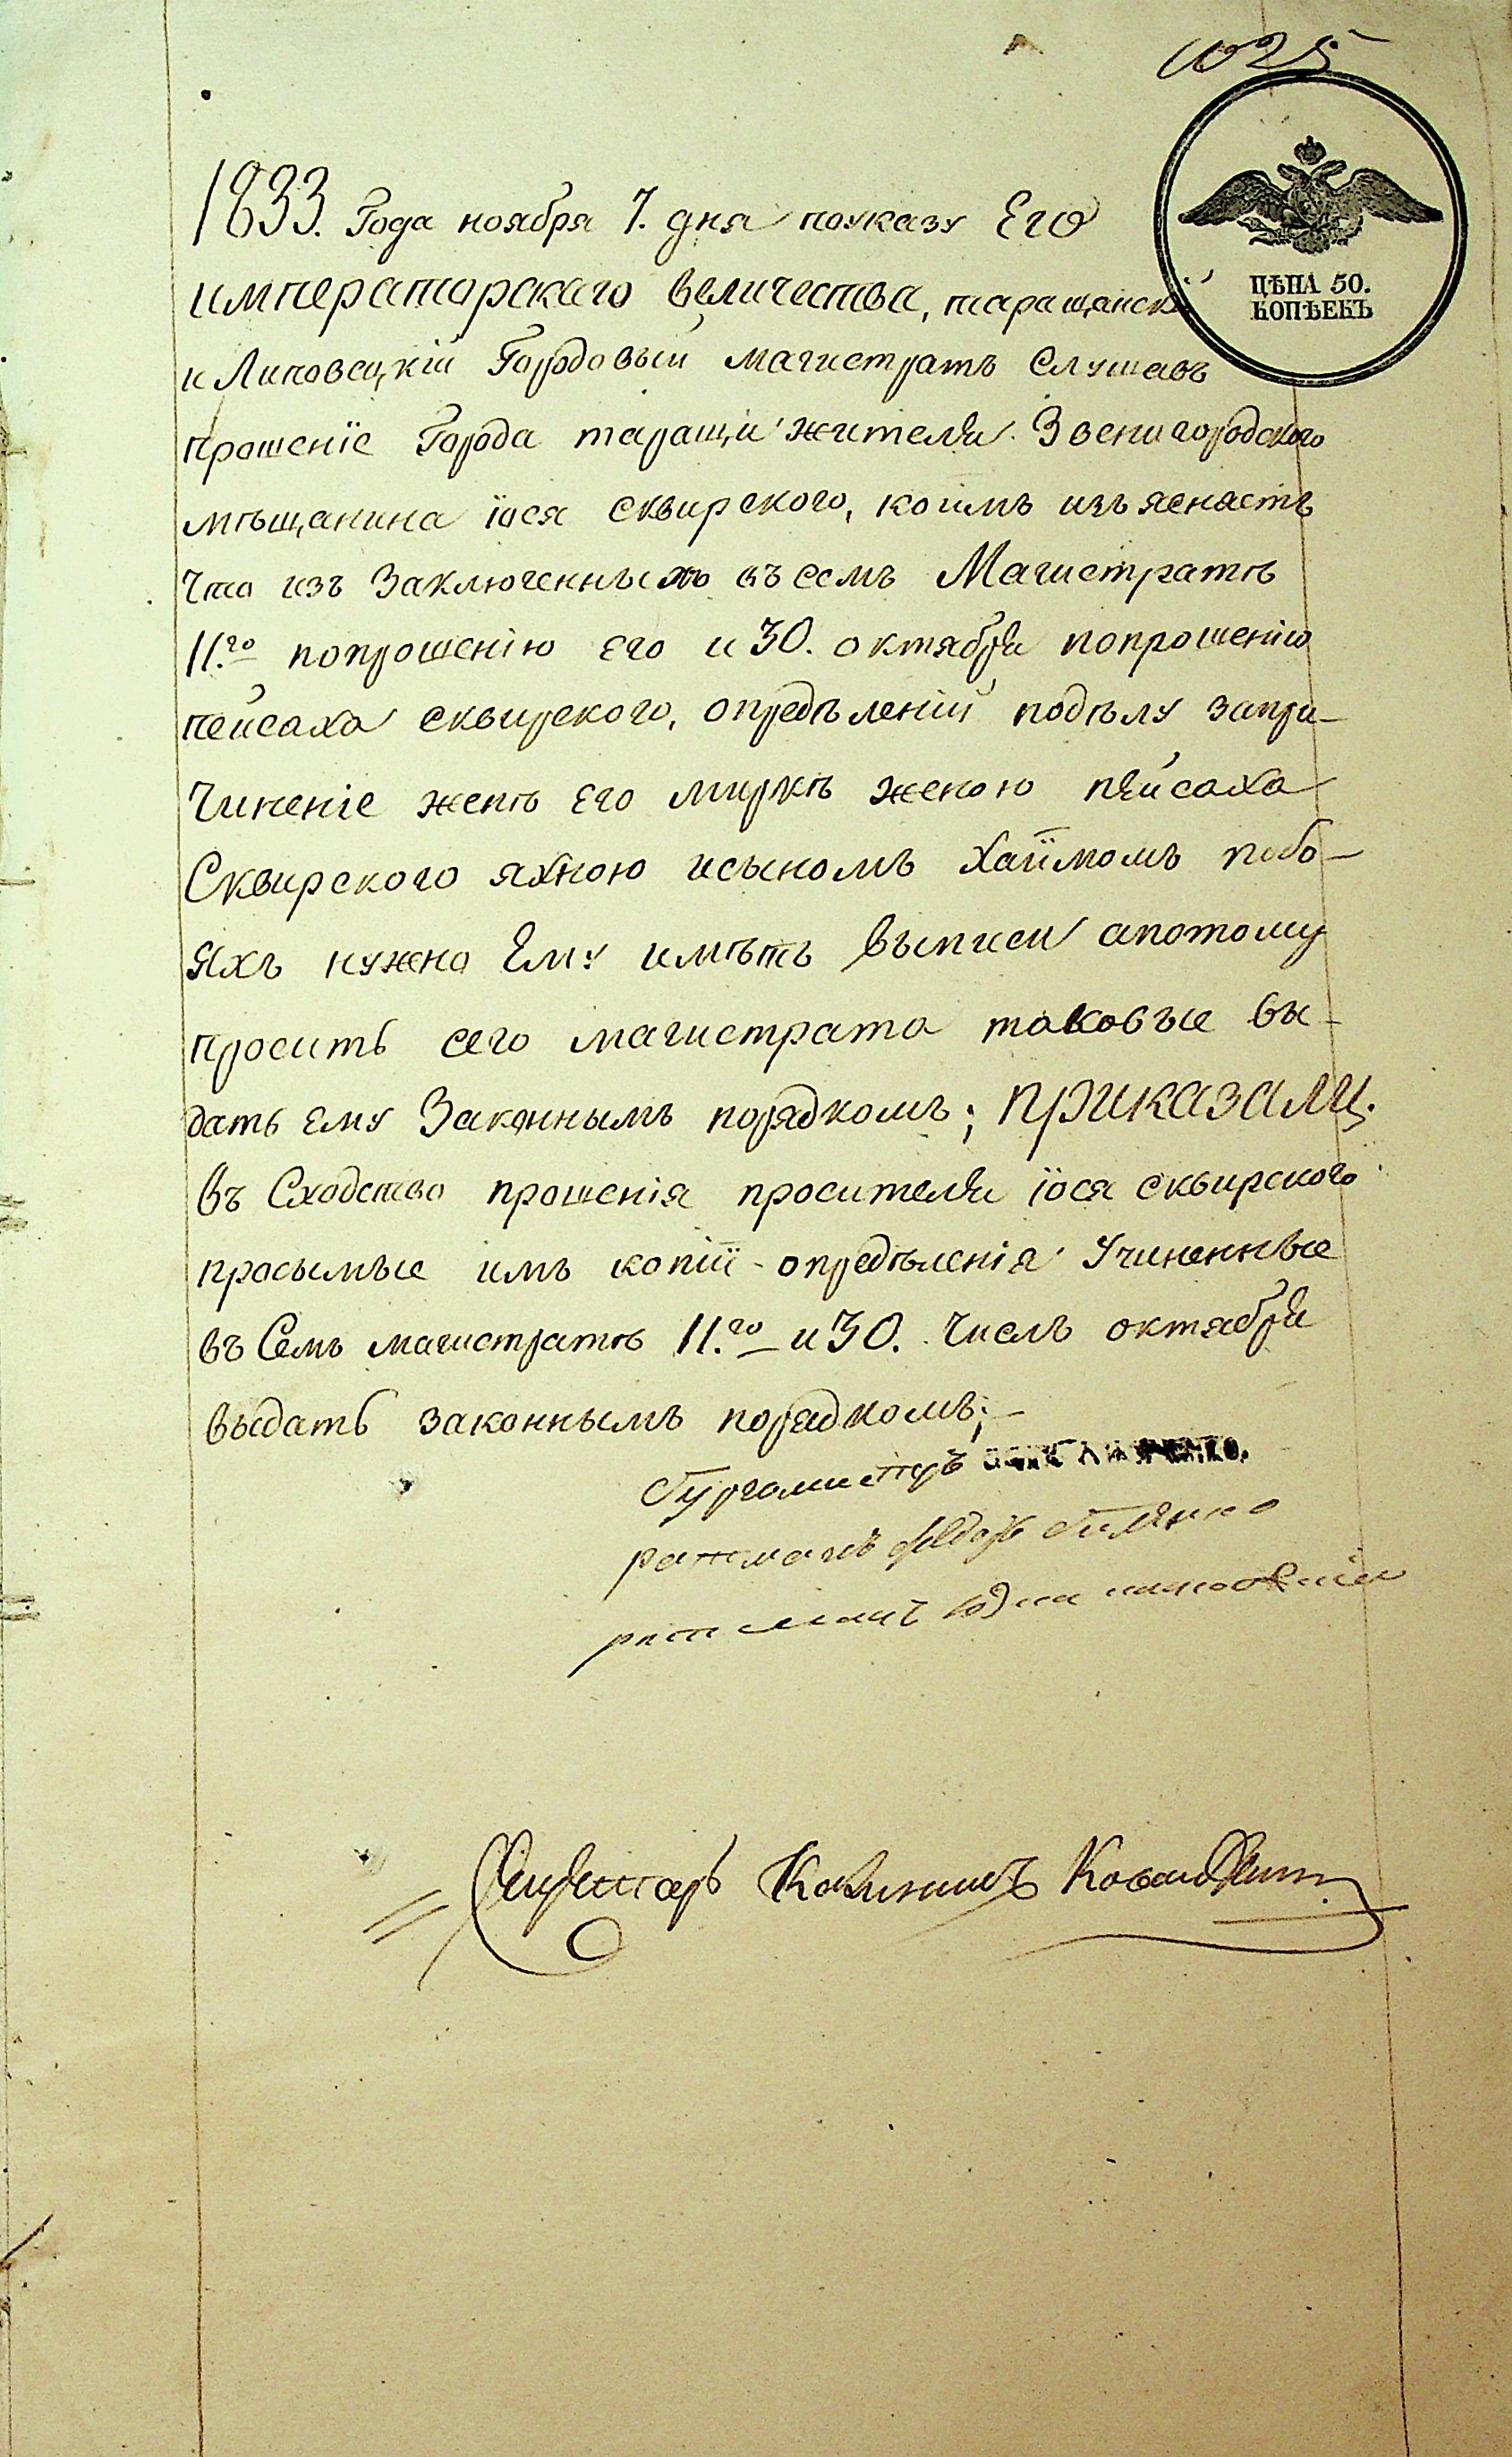 1025
ЦѢНА 50.
КОПѢЕКЪ
1833. Года ноября 7. дня поуказу Его
императорскаго величества, таращанскій
и Липовецкій Городовый магистратъ слушавъ
прошеніе Города таращи жителя Звенигородского
мѣщанина іося сквирского, коимъ изъясняетъ
Что изъ Заключенныхъ въ семъ Магистратѣ
11.го попрошенію его и 30. октября попрошенію
пейсаха сквирского, опредѣленій подѣлу запри-
чиненіе женѣ его миркѣ женою пейсаха
Сквирского яхною исыномъ хаіімомъ побо-
яхъ нужно Ему имѣть выписи апотому
просить сего магистрата таковые вы-
дать ему Законнымъ порядкомъ; ПРИКАЗАЛИ.
въ Сходство прошенія просителя іося сквирского
просымые имъ копіи опредѣленія Учиненные
въ Семъ магистратѣ 11.го и 30. Числъ октября
выдать законнымъ порядкомъ;-
бургомистръ
ратманъ федоръ
ратманъ
Секретарь